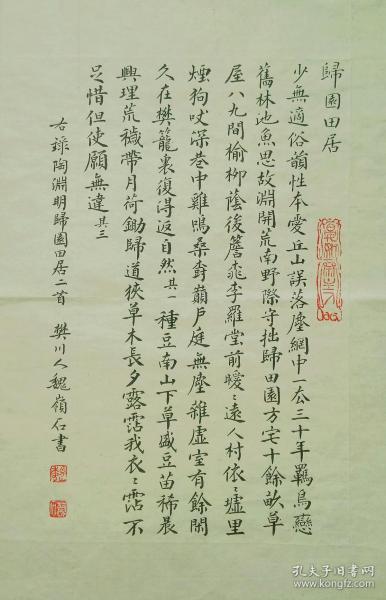 歸園田居
少無適俗韻性本愛丘山誤落塵網中一去三十年羈鳥戀
舊林池魚思故淵開荒南野際守拙歸田園方宅十餘畝草
屋八九間榆柳蔭後簷桃李羅堂前曖〻遠人村依〻墟里
煙狗吠深巷中雞鳴桑樹巔戶庭無塵雜虛室有餘閑
久在樊籠裏復得返自然其一 種豆南山下草盛豆苗稀晨
興理荒穢帶月荷鋤歸道狹草木長夕露霑我衣〻霑不
足惜但使願無違其三
右錄陶淵明歸園田居二首 樊川人魏嶺石書
孔夫子旧书网